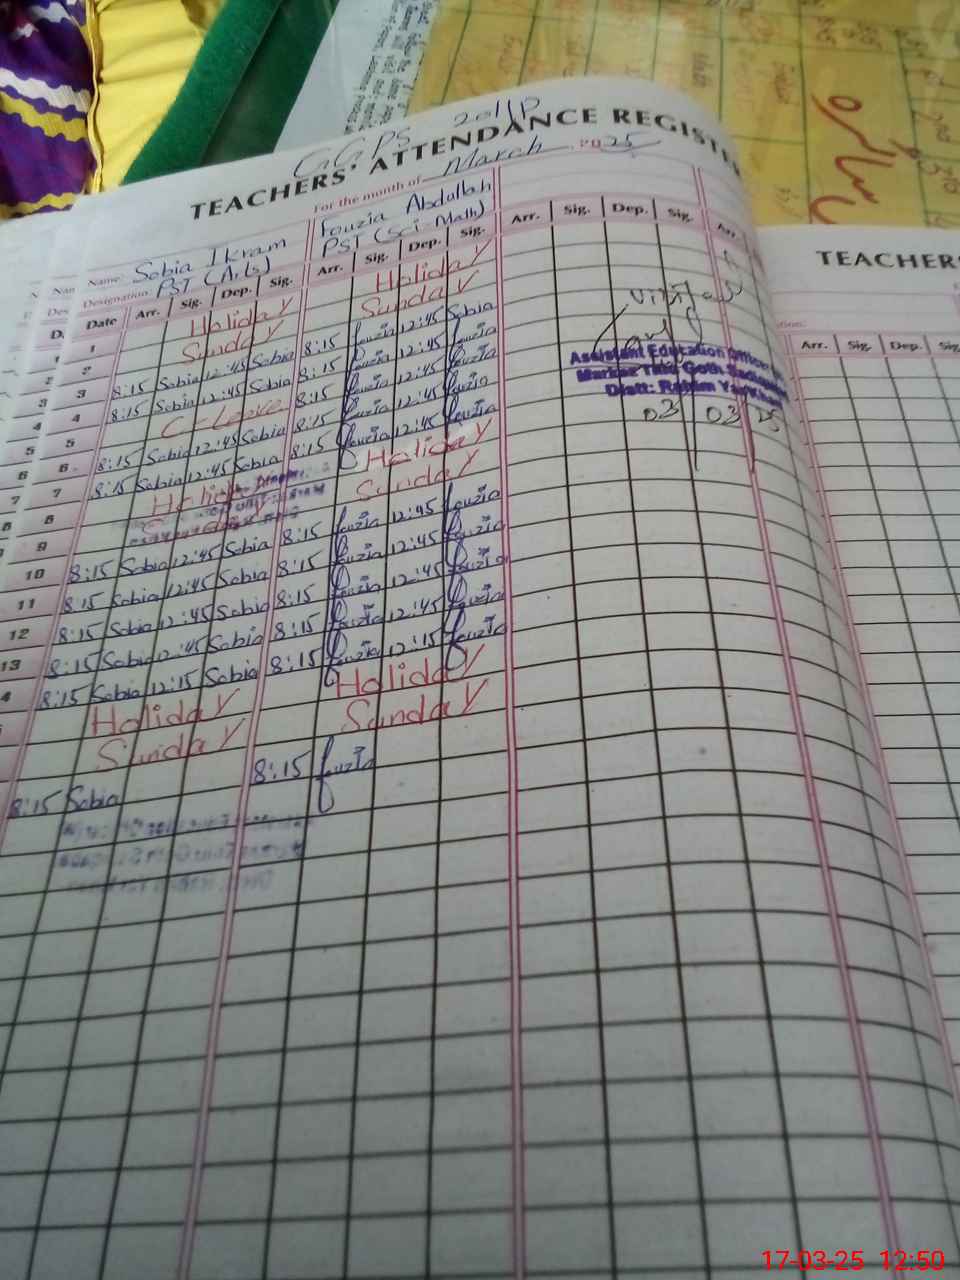 GGPS 201/P
TEACHERS' ATTENDANCE REGISTE
For the month of March 2025
Name: Sobia Ikram Fouzia Abdullah
Designation: PST (Arts) PST (Sci-Math)
Date Arr. Sig. Dep. Sig. Arr. Sig. Dep. Sig. Arr. Sig. Dep. Sig. Arr.
1 Holiday Holiday
2 Sunday Sunday
3 8:15 Sobia 12:45 Sobia 8:15 fouzia 12:45 Sobia
4 8:15 Sobia 12:45 Sobia 8:15 fouzia 12:45 fouzia
5 C-Leave 8:15 fouzia 12:45 fouzia
6 8:15 Sobia 12:45 Sobia 8:15 fouzia 12:45 fouzia
7 8:15 Sobia 12:45 Sobia 8:15 fouzia 12:45 fouzia
8 Holiday Holiday
9 Sunday Sunday
10 8:15 Sobia 12:45 Sobia 8:15 fouzia 12:45 fouzia
11 8:15 Sobia 12:45 Sobia 8:15 fouzia 12:45 fouzia
12 8:15 Sobia 12:45 Sobia 8:15 fouzia 12:45 fouzia
13 8:15 Sobia 12:45 Sobia 8:15 fouzia 12:45 fouzia
4 8:15 Sobia 12:15 Sobia 8:15 fouzia 12:15 fouzia
Holiday Holiday
Sunday Sunday
8:15 Sobia 8:15 fouzia
visited
Assistant Education Officer
Markaz Thul Goth
Distt: Rahim Yar Khan
03 03 25
TEACHERS
Arr. Sig. Dep. Sig.
17-03-25 12:50